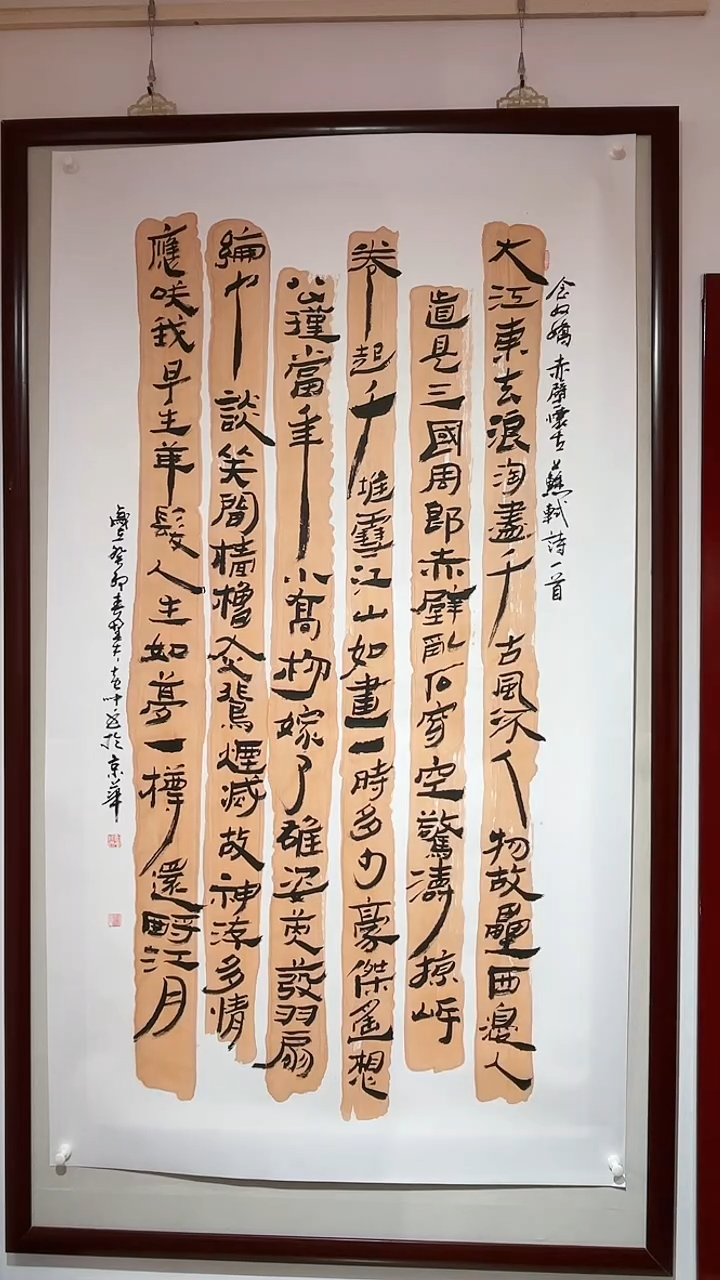 念奴嬌 赤壁懷古 蘇軾詩一首
大江東去浪淘盡千古風流人物故壘西邊人
道是三國周郎赤壁亂石穿空驚濤掠岸
卷起千堆雪江山如畫一時多少豪傑遙想
公瑾當年小喬初嫁了雄姿英發羽扇
綸巾談笑間檣櫓灰飛煙滅故神游多情
應咲我早生華髮人生如夢一樽還酹江月
歲在癸卯春於京華